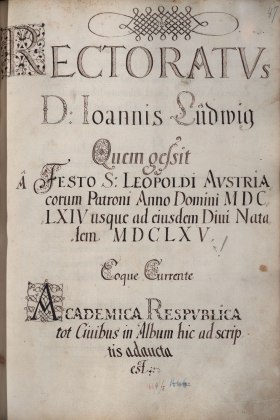 RECTORATVs
D: Ioannis Lůdwig
Quem gessit
â FESTO S: LEOPOLDI AVSTRIA
corum Patroni Anno Domini MDC
LXIV usque ad eiusdem Diui Nata
lem. MDCLXV.
Eoque Currente
ACADEMICA RESPVBLICA
tot Ciuibus in Album hic ad scrip
tis adaucta
est